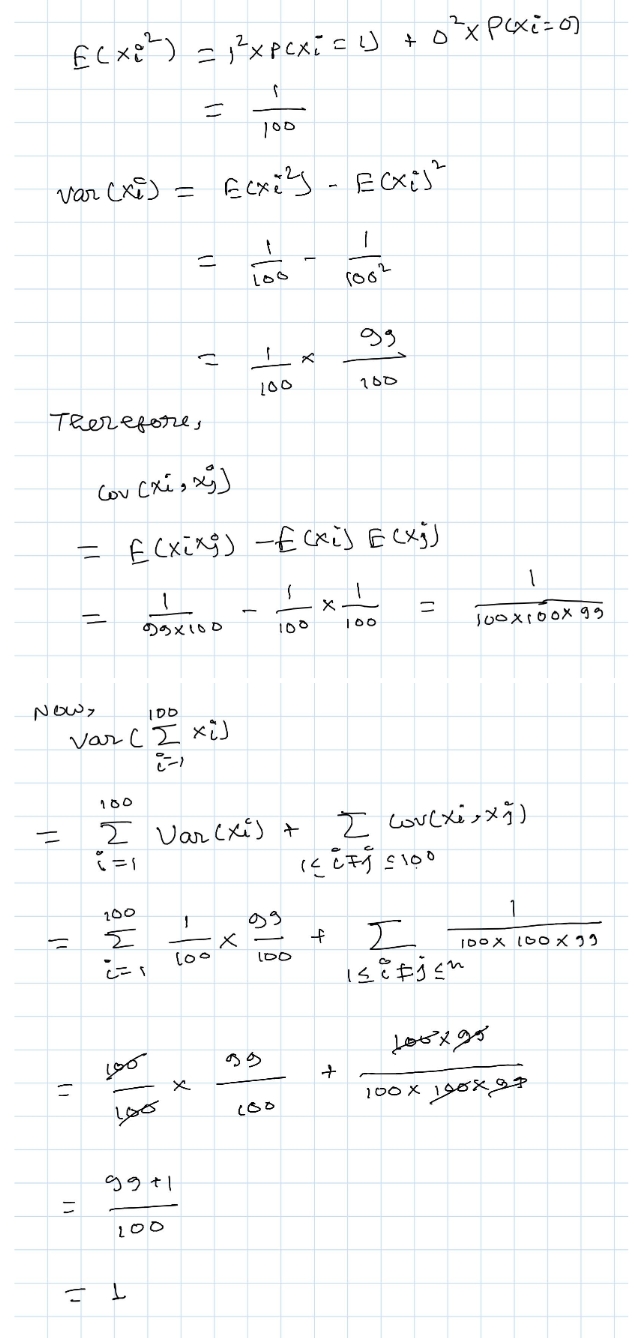 E(xi²) = 1² x P(xi = 1) + 0² x P(xi = 0)
= 1/100
var (xi) = E(xi²) - E(xi)²
= 1/100 - 1/100²
= 1/100 x 99/100
Therefore,
Cov (xi, xj)
= E(xixj) - E(xi) E(xj)
= 1/99x100 - 1/100 x 1/100 = 1/100x100x99
Now,
Var (100Σi=1 xi)
= 100Σi=1 Var (xi) + Σ1≤i≠j≤100 Cov(xi, xj)
= 100Σi=1 1/100 x 99/100 + Σ1≤i≠j≤n 1/100x100x99
= 100/100 x 99/100 + 100x99/100x100x99
= 99+1/100
= 1